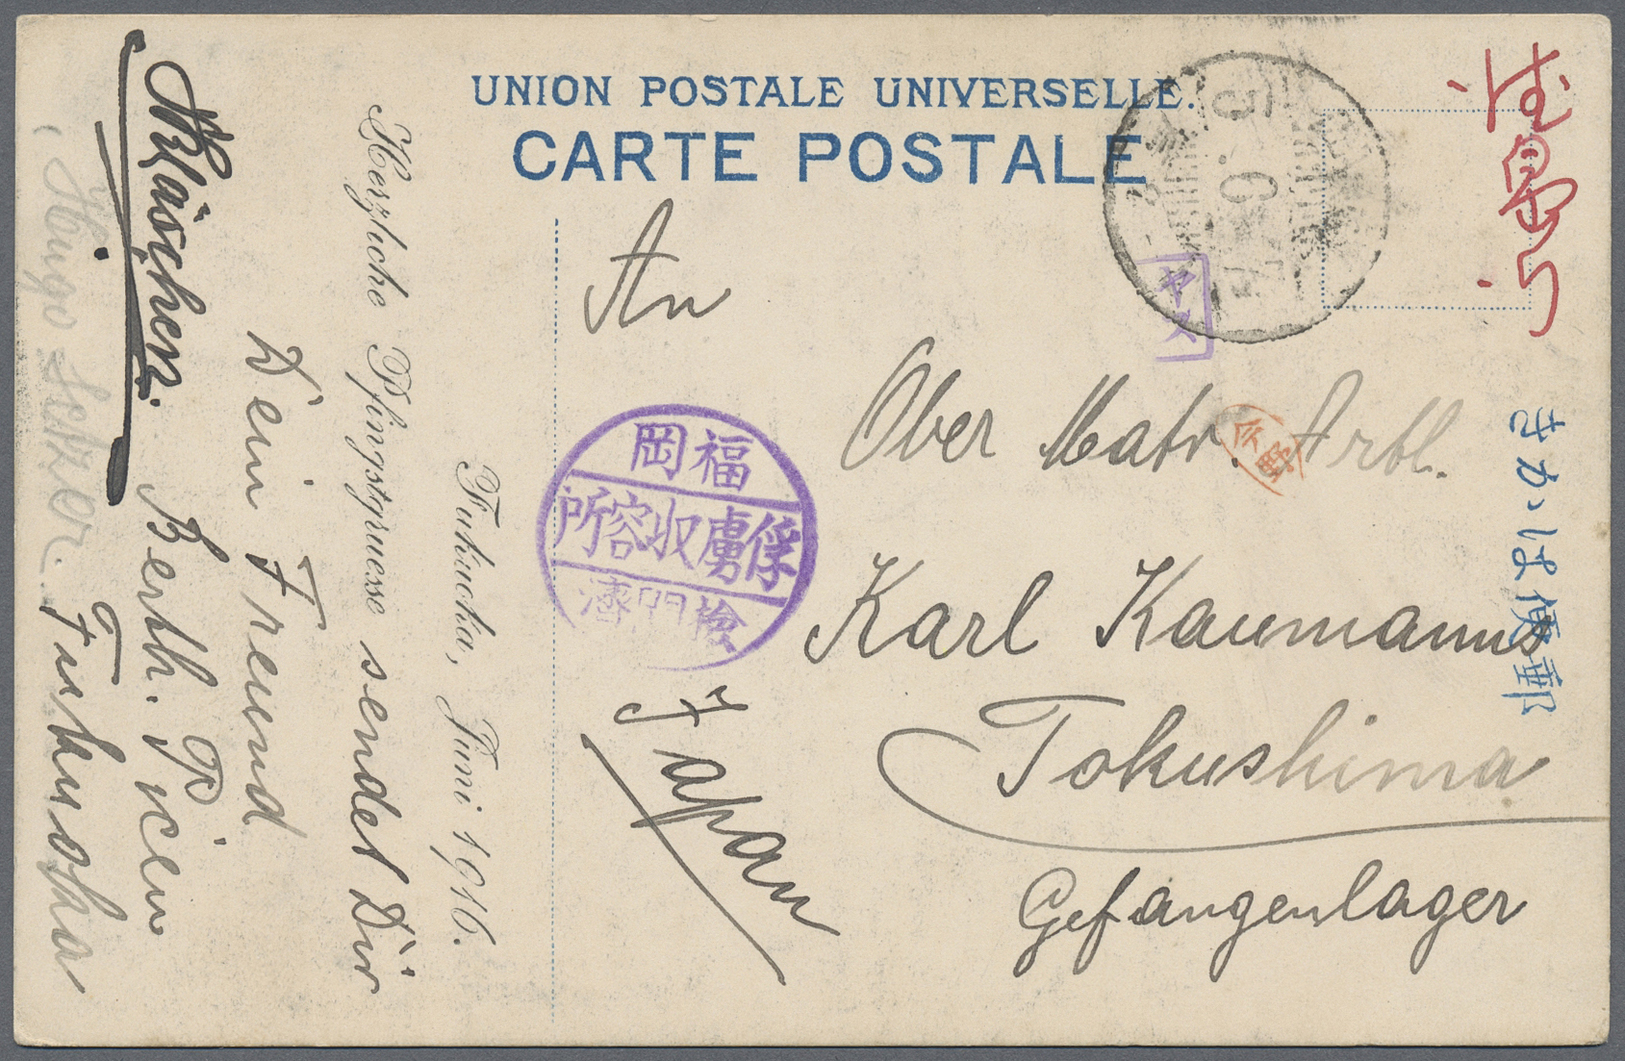 UNION POSTALE UNIVERSELLE.
CARTE POSTALE
きかは便郵
An
Ober Matr. Artl.
Karl Kaumanns
Tokushima
Gefangenlager
Japan
岡福
所容収虜俘
濟閲檢
ヤス
今野
Fukuoka, Juni 1916.
Herzliche Pfingstgruesse sendet Dir
Dein Freund
Berth.
Kläschen.
Hugo
Fukuoka